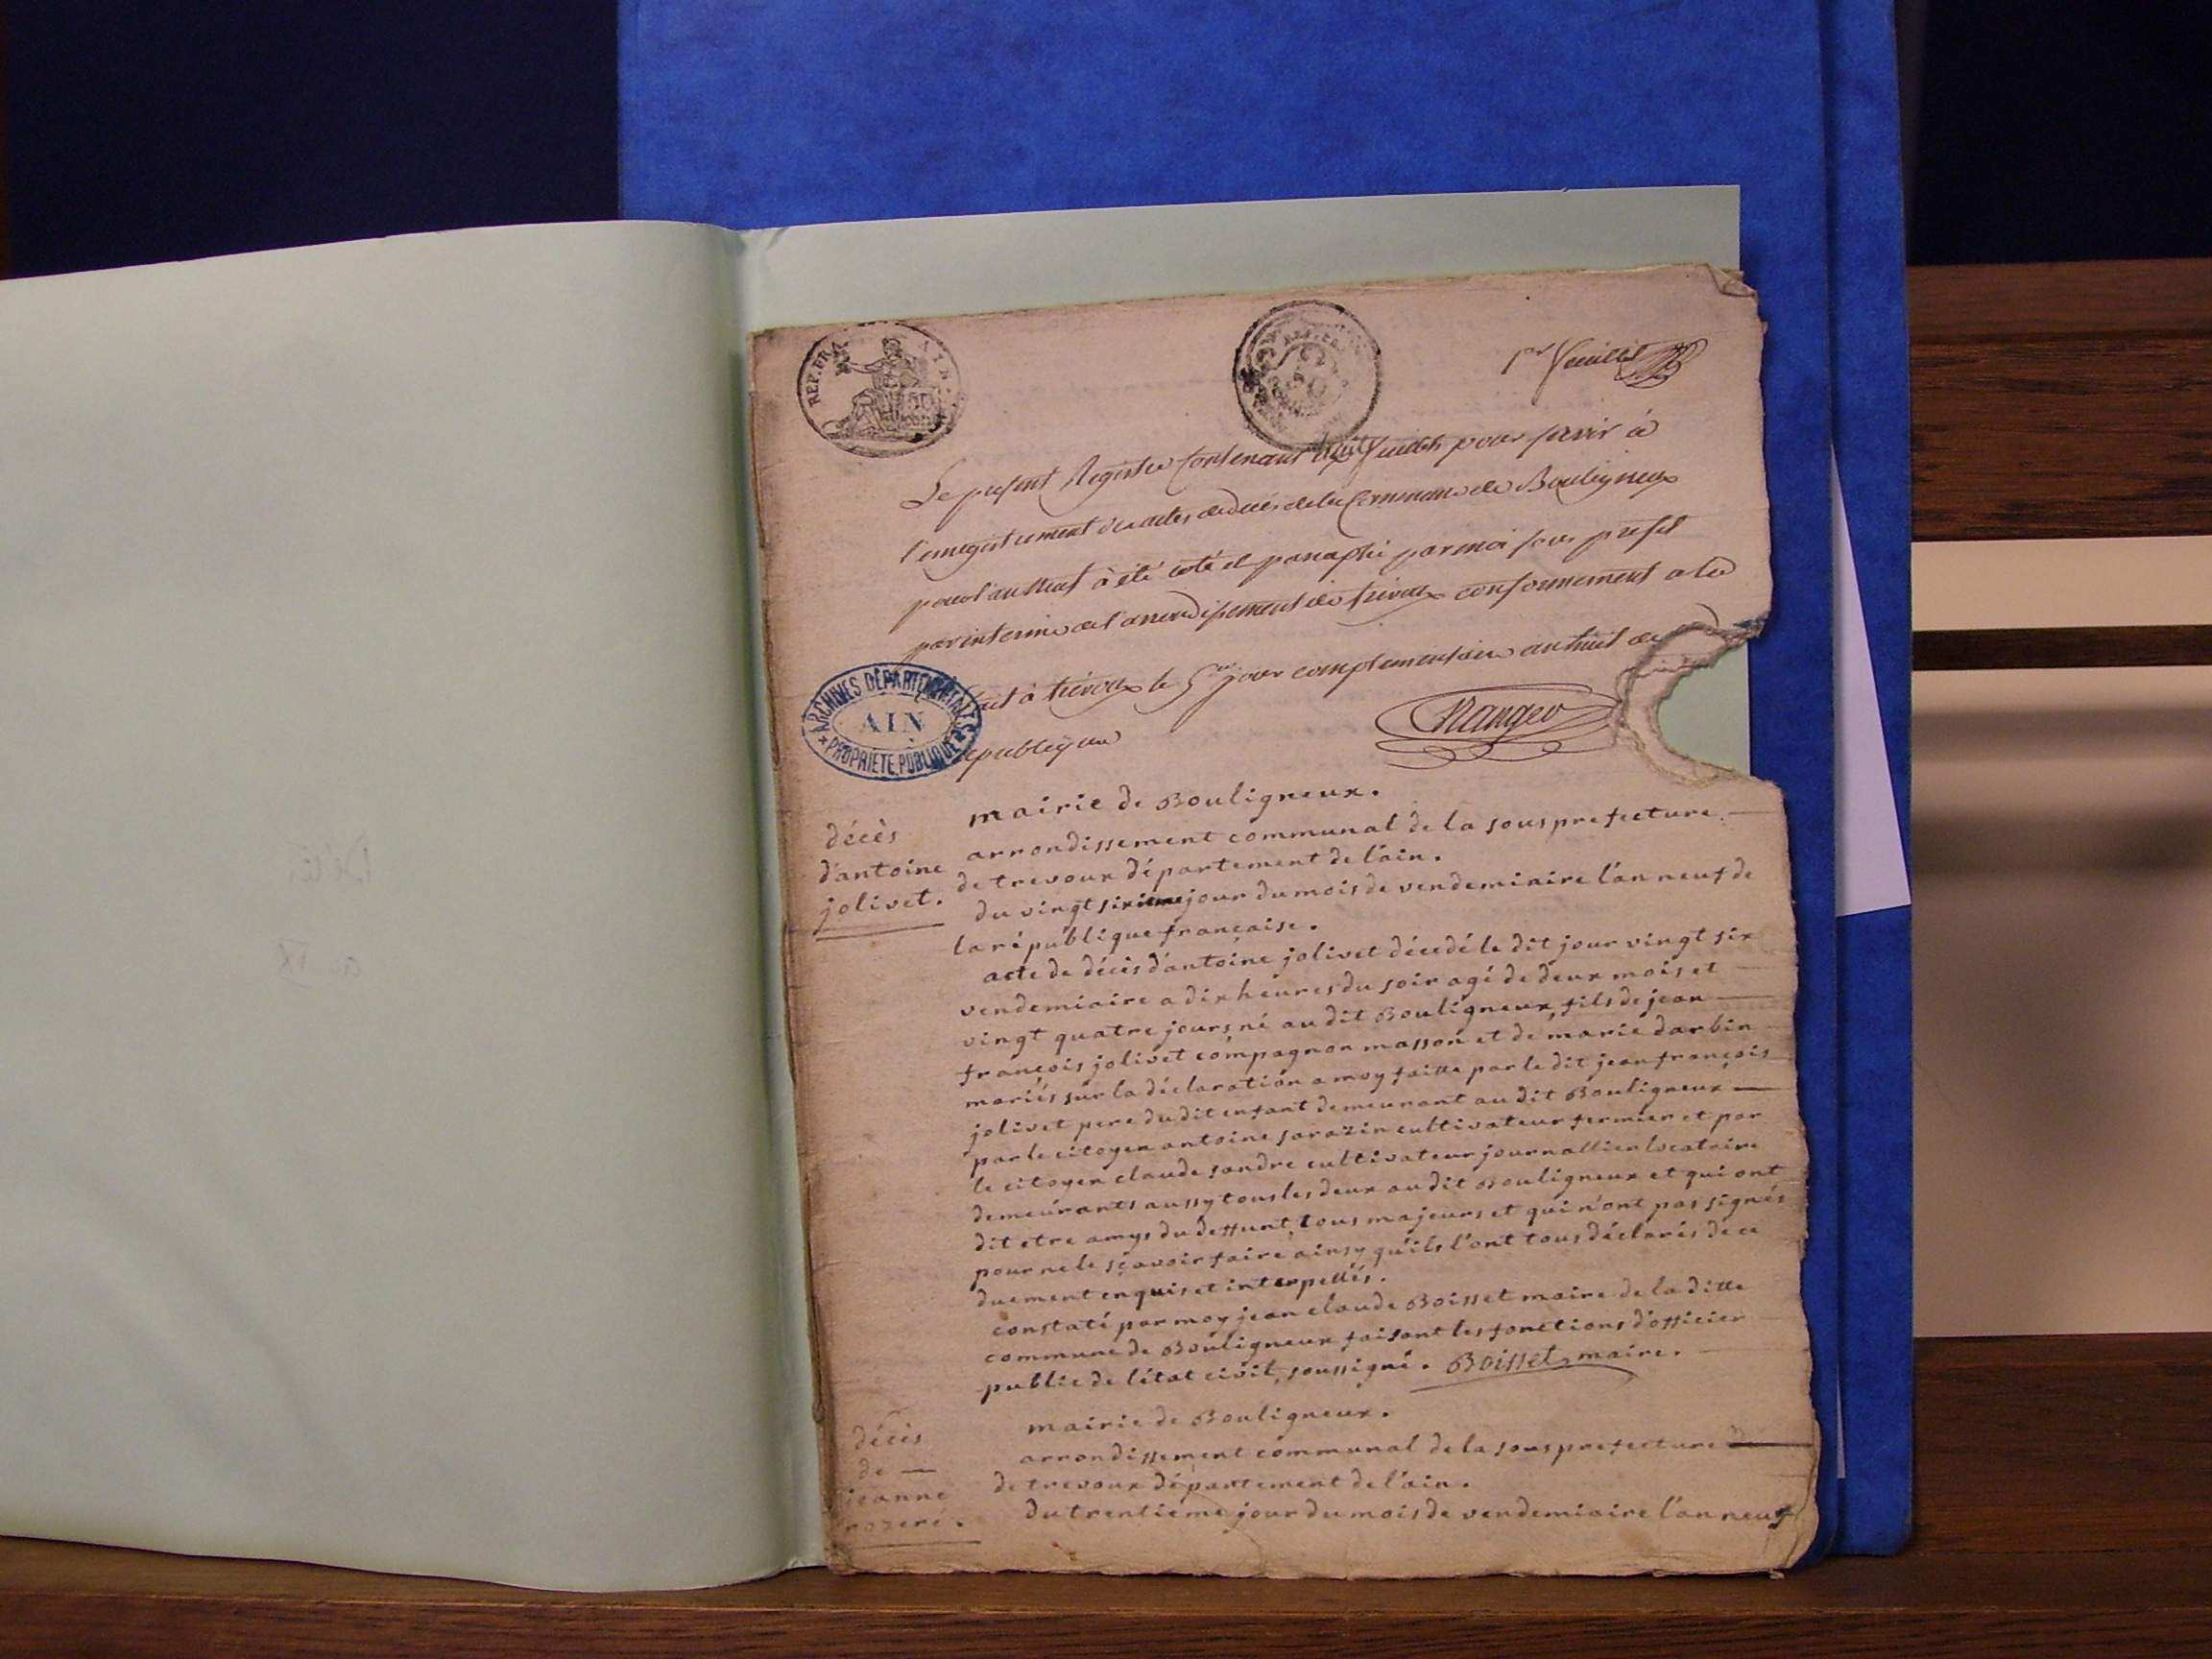 REP. FRA. AIN
1er feuillet
Le present Registre Contenant huit feuillets pour servir à
l'enregistrement des actes de decès de la Commune de Bouligneux
pour l'an Neuf à été coté et paraphé par moi sous prefet
par interim de l'arrondissement de trevoux conformement a la
fait à trévoux le 5me jour complementaire an huit de
republiq
Rangeo
ARCHIVES DÉPARTEMENTALES
AIN
PROPRIÉTÉ PUBLIQUE
mairie de Bouligneux.
décès
d'antoine
jolivet.
arrondissement communal de la sous prefecture
de trevoux département de l'ain.
du vingt sixieme jour du mois de vendemiaire l'an neuf de
la république française.
acte de décès d'antoine jolivet décedé le dit jour vingt six
vendemiaire a dix heures du soir agé de deux mois et
vingt quatre jours, né au dit Bouligneux, fils de jean
françois jolivet compagnon masson et de marie darbin
mariés sur la déclaration a moy faitte par le dit jean françois
jolivet pere du dit enfant demeurant au dit Bouligneux
par le citoyen antoine sarazin cultivateur fermier et par
le citoyen claude sandre cultivateur journallier locataire
demeurants aussy tous les deux au dit Bouligneux et qui ont
dit etre amys du deffunt, tous majeurs et qui n'ont pas signés
pour ne le sçavoir faire ainsy qu'ils l'ont tous déclarés de ce
duement enquis et interpellés.
constaté par moy jean claude Boisset maire de la ditte
commune de Bouligneux faisant les fonctions d'officier
public de l'état civil, soussigné. Boisset, maire.
mairie de Bouligneux.
décès
de
jeanne
rozeré.
arrondissement communal de la sous prefecture
de trevoux département de l'ain.
du trentieme jour du mois de vendemiaire l'an neuf